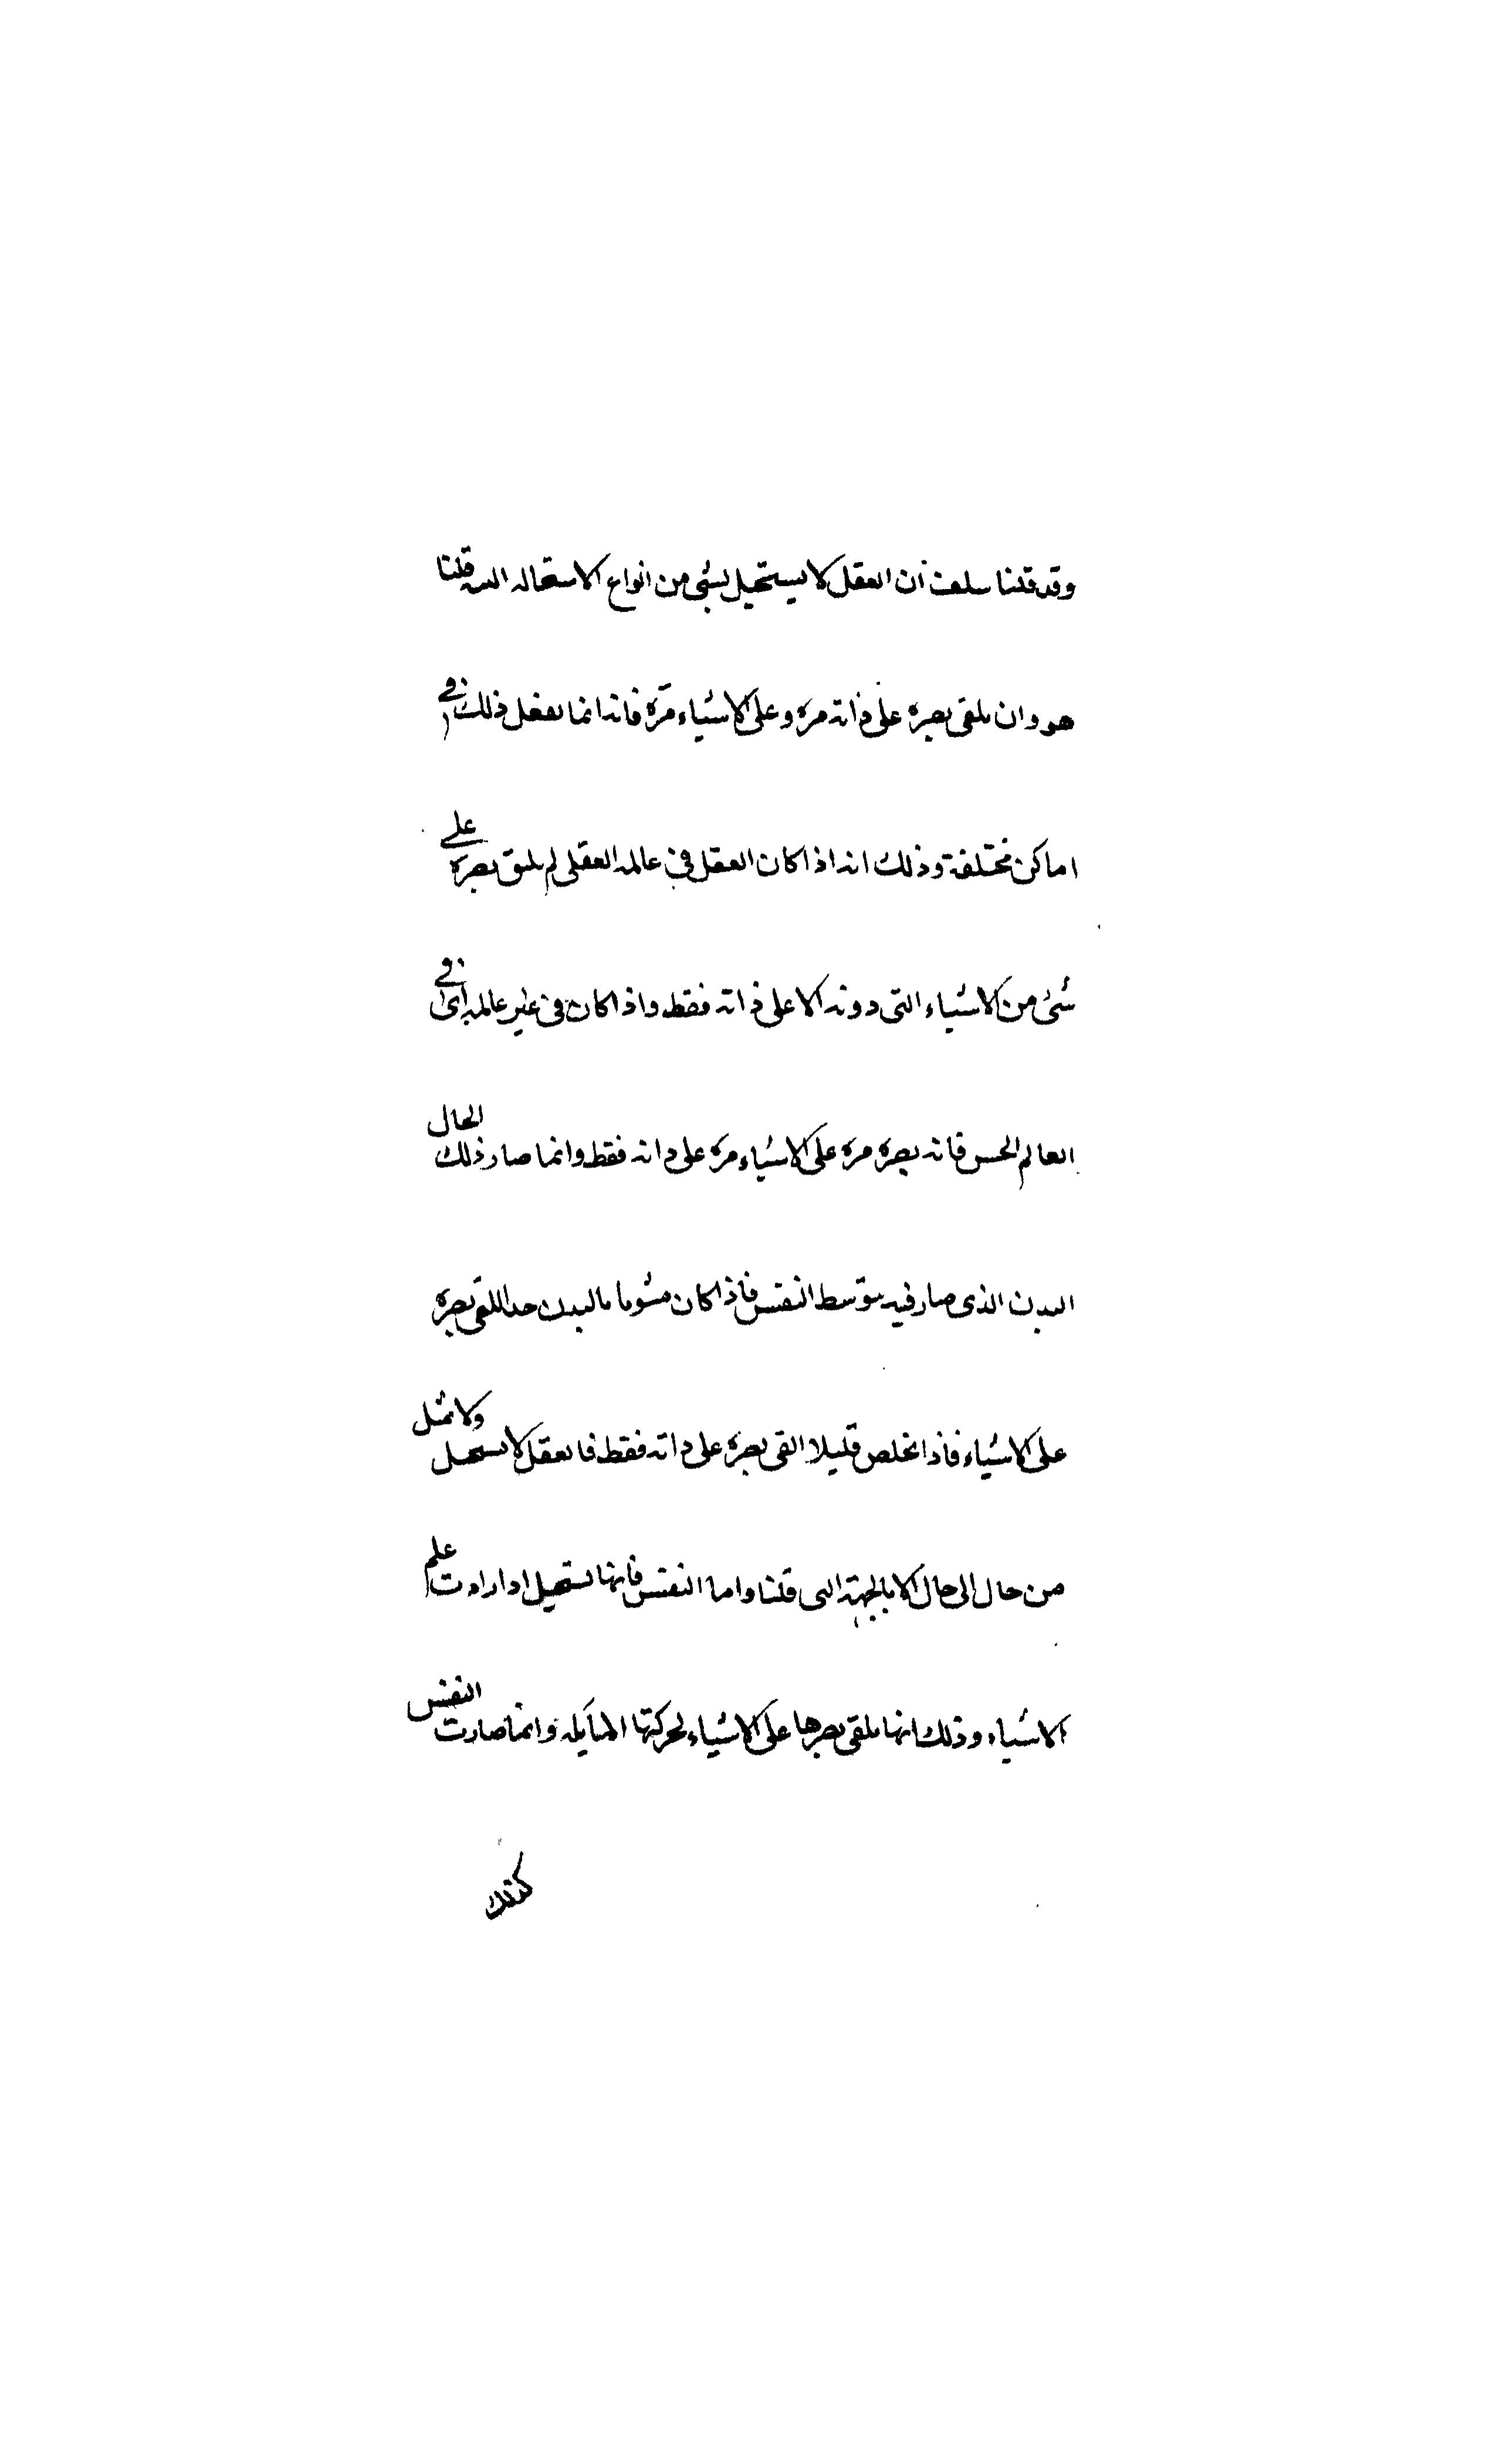 وقد قلنا سلف ان العقل لا يستحيل بشئ من انواع الاستحاله قلنا
هو وان يلقى بصره على ذاته مرة وعلى الاشياء مرّة فانه انما يفعل ذلك في
اماكن مختلفة وذلك انه اذا كان العقل فى عالمه العقلى لم يلق بصره على
شئ من الاشياء التى دونه الا على ذاته فقط واذا كان فى غير عالمه اى في
العالم الحس فانه بصره مرة على الاشياء مرة على ذاته فقط وانما صار ذلك الحال
البدن الذى صار فيه بتوسط النفس فاذا كان مشوبا بالبدن جدا القى بصره
على الاشياء فاذا تخلص قليلا القى بصره على ذاته فقط فالعقل لا يستحيل ولا
من حال الى حال الا بالجهة التى قلنا واما النفس فانها تستحيل اذا ارادت علم
الاشياء وذلك انها تلقى بصرها على الاشياء لحركتها المايله وانما صارت النفس
كذلك